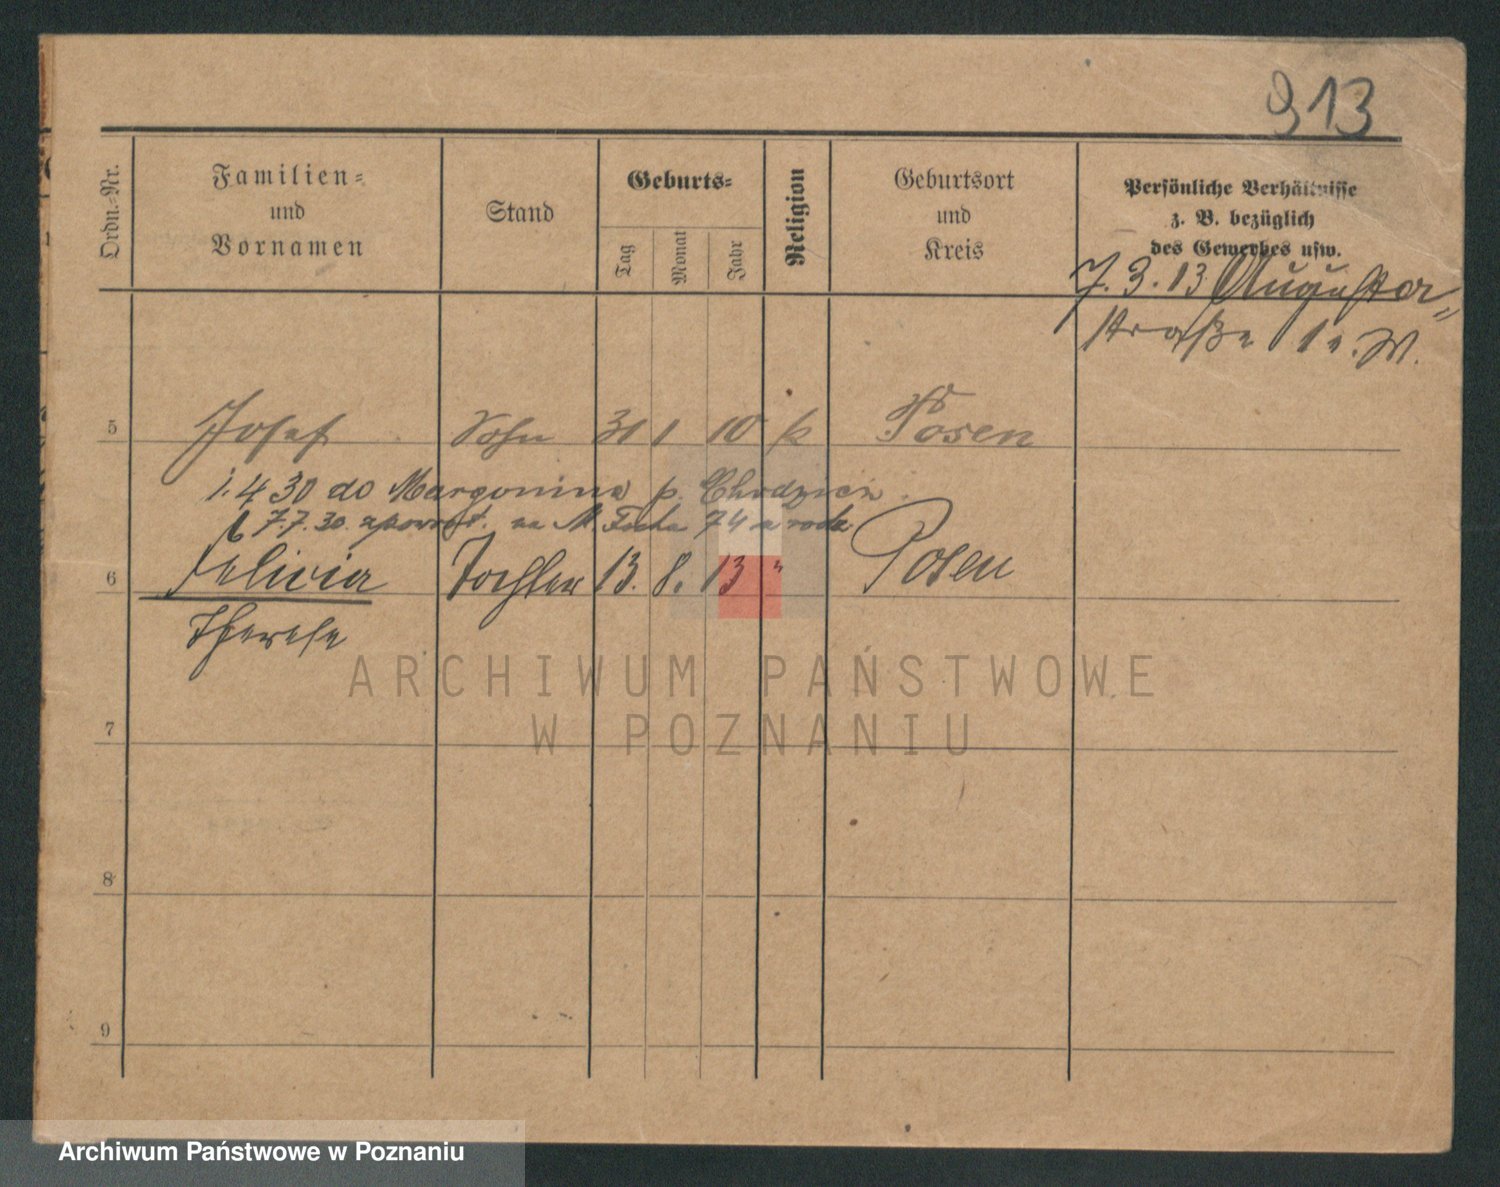 913
Ordn.-Nr.
Familien-
und
Vornamen
Stand
Geburts-
Tag
Monat
Jahr
Religion
Geburtsort
und
Kreis
Persönliche Verhältnisse
z. B. bezüglich
des Gewerbes usw.
7. 3. 13 Augusta-
straße 1 v. W.
5 Josef Sohn 31 1 10 k Posen
1.4 30 do Margonina p. Chodzież.
7.7.30. zpowrot. na M. Focha 74 u rodz
6 Felicia Tochter 13. 8. 13 " Posen
Therese
7
8
9
ARCHIWUM PAŃSTWOWE
W POZNANIU
Archiwum Państwowe w Poznaniu